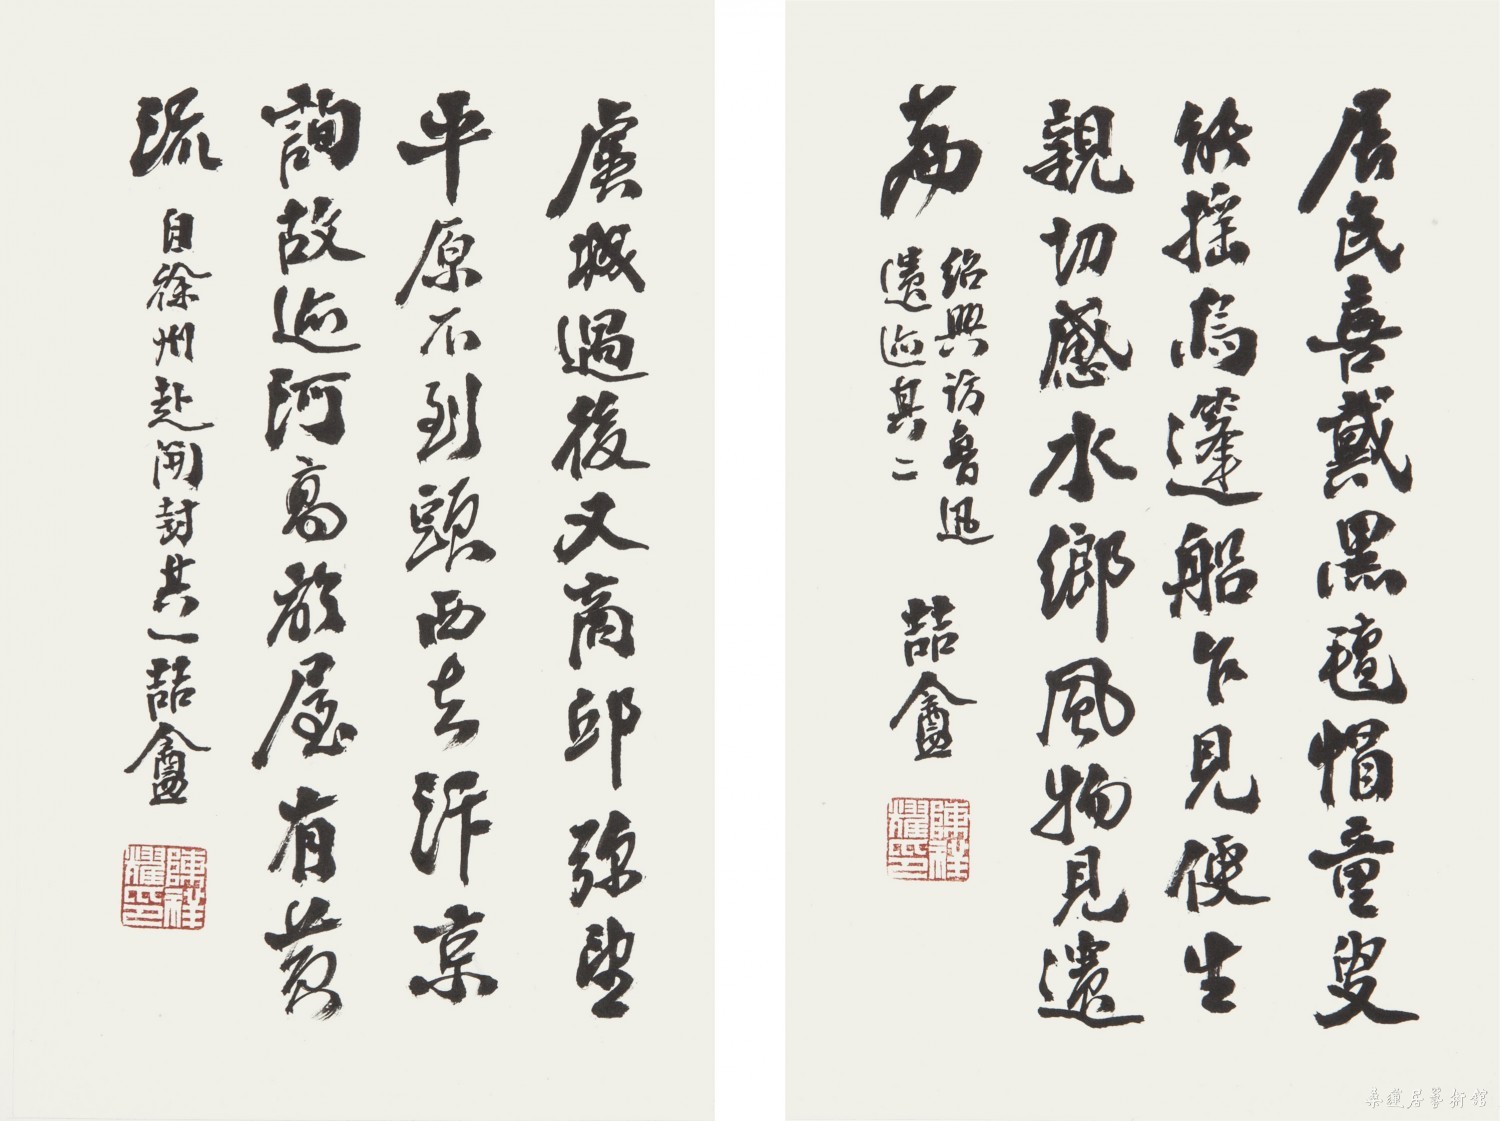 居民喜戴黑氈帽童叟
能搖烏篷船乍見便生
親切感水鄉風物見遺
篇
紹興訪魯迅
遺迹其二
喆盦
陳祥耀印
虞城過後又商邱弥望
平原不到頭西去汴京
詢故迹河高於屋有黃
流
自徐州赴開封其一喆盦
陳祥耀印
桑蓮居藝術館